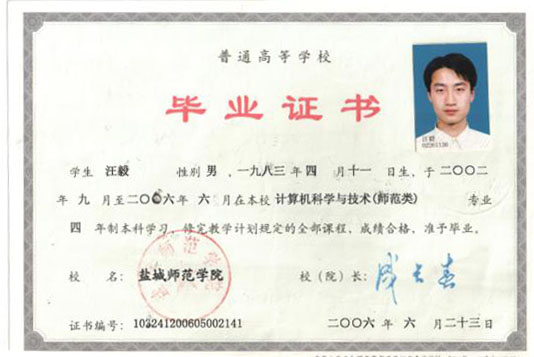 普通高等学校
毕业证书
汪毅
02261136
学生 汪毅 性别 男,一九八三年 四 月 十一 日生,于二〇〇二
年 九 月至二〇〇六年 六 月在本校 计算机科学与技术(师范类) 专业
四 年制本科学习,修完教学计划规定的全部课程,成绩合格,准予毕业。
校 名: 盐城师范学院 校(院)长:
证书编号: 103241200605002141 二〇〇六年 六 月 二十三日